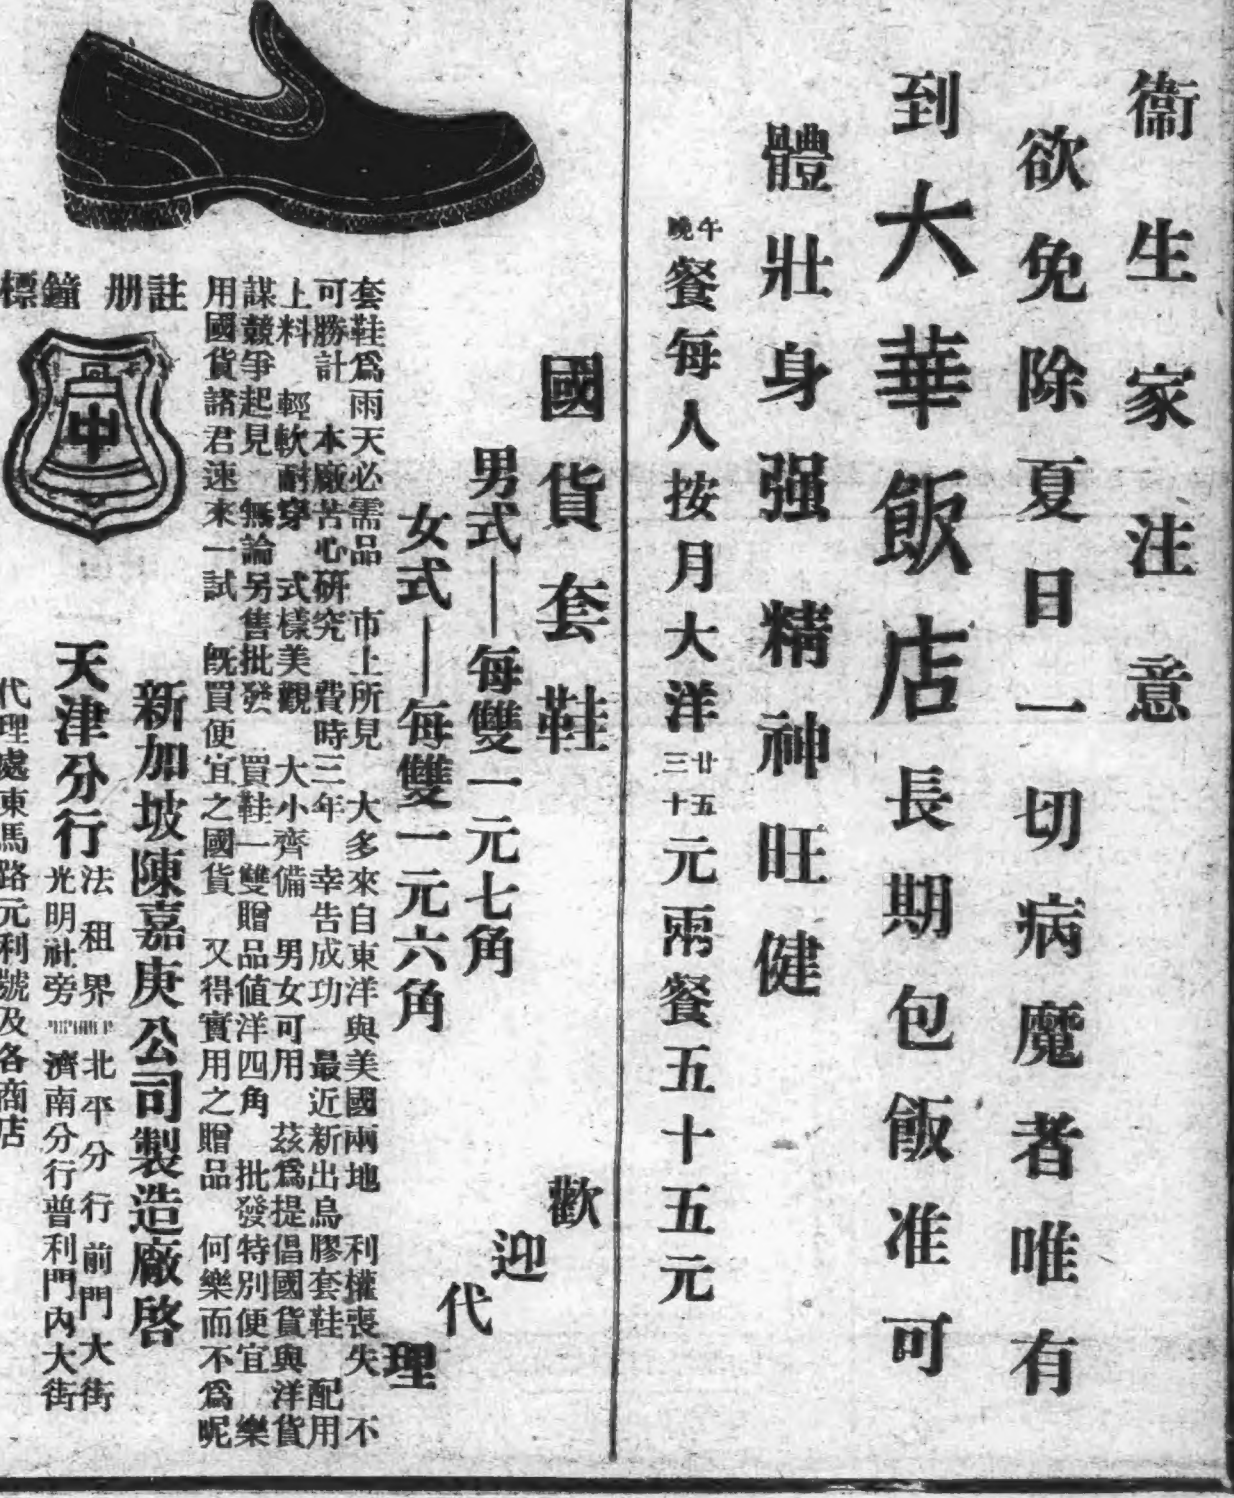 衞生家注意
欲免除夏日一切病魔者唯有
到大華飯店長期包飯准可
體壯身强精神旺健
午晚餐每人按月大洋廿五三十元兩餐五十五元
國貨套鞋
男式——每雙一元七角
女式——每雙一元六角
歡迎代理
套鞋爲雨天必需品 市上所見 大多來自東洋與美國兩地 利權喪失 不
可勝計 本廠苦心研究 費時三年 幸告成功 最近新出烏膠套鞋 配用
上料 輕軟耐穿 式樣美觀 大小齊備 男女可用 茲爲提倡國貨與洋貨
謀競爭起見 無論另售批發 買鞋一雙贈品值洋四角 批發特別便宜 樂
用國貨諸君速來一試 旣買便宜之國貨 又得實用之贈品 何樂而不爲呢
註册 鐘標
中
新加坡陳嘉庚公司製造廠啓
天津分行 法租界光明社旁
北平分行前門大街
濟南分行普利門內大街
代理處東馬路元利號及各商店